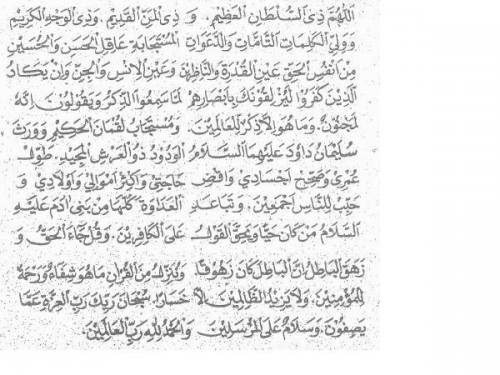 اَللّٰهُمَّ ذِى السُّلْطَانِ الْعَظِيْمِ. وَ ذِى الْمَنِّ الْقَدِيْمِ. وَذِى الْوَجْهِ الْكَرِيْمِ
وَوَلِيِّ الْكَلِمَاتِ التَّآمَّاتِ وَالدَّعَوَاتِ الْمُسْتَجَابَةِ عَاقِلِ الْحَسَنِ وَالْحُسَيْنِ
مِنْ اَنْفُسِ الْحَقِّ عَيْنِ الْقُدْرَةِ وَالنَّاظِرِيْنَ وَعَيْنِ الْاِنْسِ وَالْجِنِّ وَاِنْ يَكَادُ
الَّذِيْنَ كَفَرُوْا لَيُزْلِقُوْنَكَ بِاَبْصَارِهِمْ لَمَّا سَمِعُوا الذِّكْرَ وَيَقُوْلُوْنَ اِنَّهُ
لَمَجْنُوْنٌ. وَمَا هُوَ اِلَّا ذِكْرٌ لِلْعَالَمِيْنَ. وَمُسْتَجَابُ لُقْمَانَ الْحَكِيْمِ وَوَرِثَ
سُلَيْمَانُ دَاوُدَ عَلَيْهِمَا السَّلَامُ الْوَدُوْدُ ذُو الْعَرْشِ الْمَجِيْدِ. طَوِّلْ
عُمْرِيْ وَصَحِّحْ اَجْسَادِيْ وَاقْضِ حَاجَتِيْ وَاَكْثِرْ اَمْوَالِيْ وَاَوْلَادِيْ وَ
حَبِّبْ لِلنَّاسِ اَجْمَعِيْنَ. وَتَبَاعَدِ الْعَدَاوَةَ كُلَّهَا مِنْ بَنِيْ اٰدَمَ عَلَيْهِ
السَّلَامُ مَنْ كَانَ حَيًّا وَيَحِقَّ الْقَوْلُ عَلَى الْكَافِرِيْنَ. وَقُلْ جَآءَ الْحَقُّ وَ
زَهَقَ الْبَاطِلُ اِنَّ الْبَاطِلَ كَانَ زَهُوْقًا. وَنُنَزِّلُ مِنَ الْقُرْاٰنِ مَا هُوَ شِفَآءٌ وَرَحْمَةٌ
لِلْمُؤْمِنِيْنَ. وَلَا يَزِيْدُ الظَّالِمِيْنَ اِلَّا خَسَارًا. سُبْحَانَ رَبِّكَ رَبِّ الْعِزَّةِ عَمَّا
يَصِفُوْنَ. وَسَلَامٌ عَلَى الْمُرْسَلِيْنَ وَالْحَمْدُ لِلّٰهِ رَبِّ الْعَالَمِيْنَ.